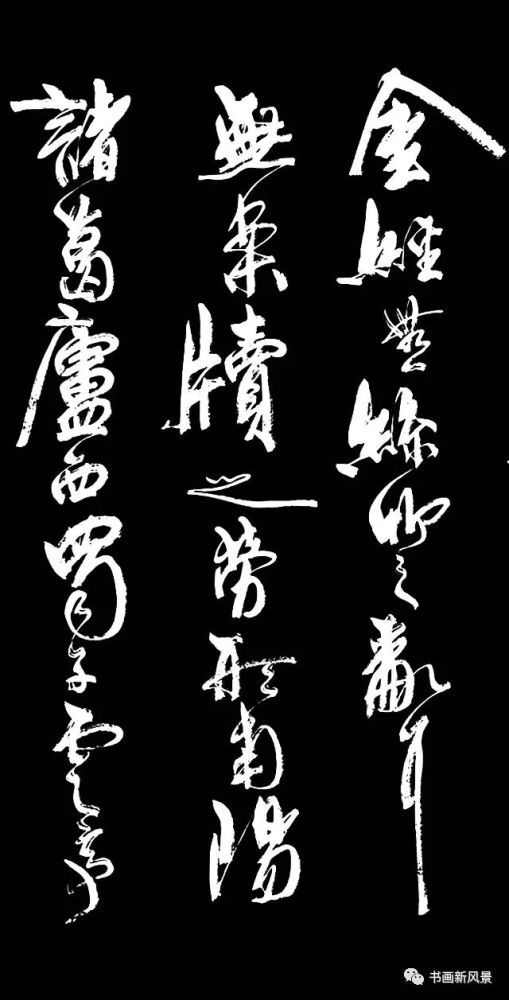 金經無絲竹之亂耳
無案牘之勞形南陽
諸葛廬西蜀子雲亭
书画新风景